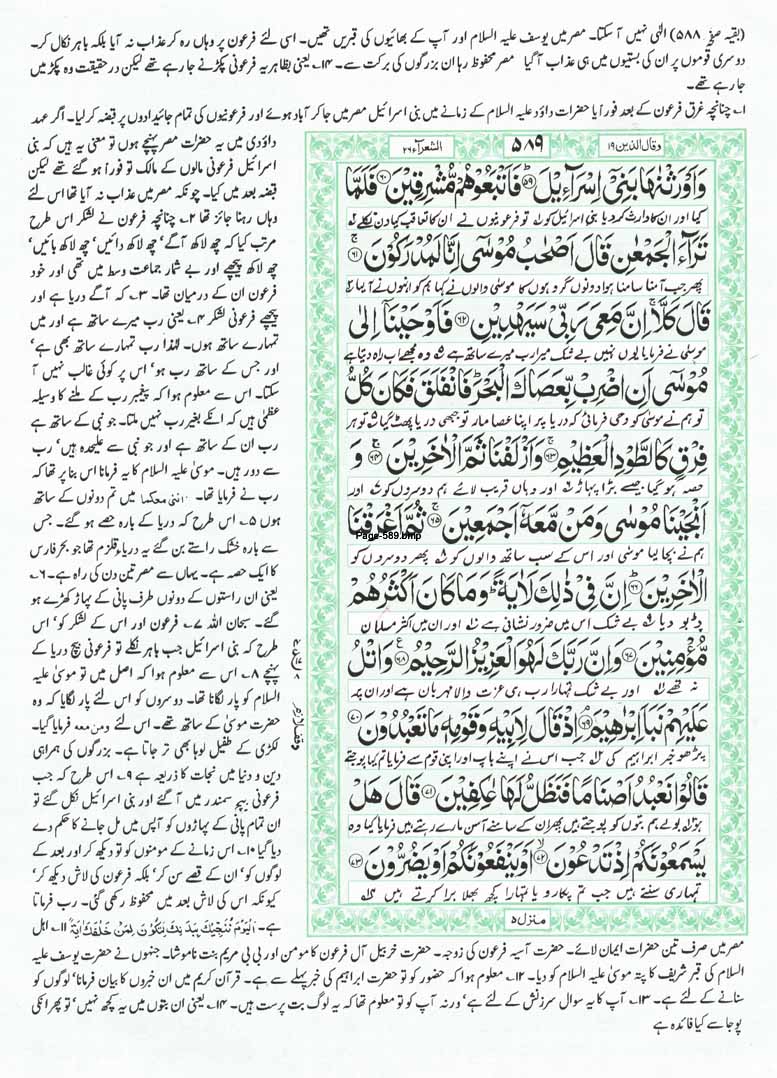 (بقیہ صفحہ ۵۸۸) الٰہی نہیں آ سکتا۔ مصر میں یوسف علیہ السلام اور آپ کے بھائیوں کی قبریں تھیں۔ اسی لئے فرعون پر وہاں رہ کر عذاب نہ آیا بلکہ باہر نکال کر۔
دوسری قوموں پر ان کی بستیوں میں ہی عذاب آ گیا مصر محفوظ رہا ان بزرگوں کی برکت سے۔ ۱۴۔ یعنی بظاہر یہ فرعونی پکڑنے جا رہے تھے لیکن درحقیقت وہ پکڑ میں
جا رہے تھے۔
۱۔ چنانچہ غرق فرعون کے بعد فوراً یا حضرات داؤد علیہ السلام کے زمانے میں بنی اسرائیل مصر میں جا کر آباد ہوئے اور فرعونیوں کی تمام جائیدادوں پر قبضہ کر لیا۔ اگر عہد
وقال الذین ۱۹
۵۸۹
الشعرآء ۲۶
وَاَوْرَثْنٰهَا بَنِیْۤ اِسْرَآءِیْلَ ﴿۵۹﴾ فَاَتْبَعُوْهُمْ مُّشْرِقِیْنَ ﴿۶۰﴾ فَلَمَّا
کیا اور ان کا وارث کر دیا بنی اسرائیل کو تو فرعونیوں نے ان کا تعاقب کیا دن نکلے
تَرَآءَ الْجَمْعٰنِ قَالَ اَصْحٰبُ مُوْسٰۤی اِنَّا لَمُدْرَكُوْنَ ﴿۶۱﴾
پھر جب آمنا سامنا ہوا دونوں گروہوں کا موسیٰ والوں نے کہا ہم کو انہوں نے آ لیا
قَالَ كَلَّا ۚ اِنَّ مَعِیَ رَبِّیْ سَیَهْدِیْنِ ﴿۶۲﴾ فَاَوْحَیْنَاۤ اِلٰی
موسیٰ نے فرمایا یوں نہیں بے شک میرا رب میرے ساتھ ہے وہ مجھے اب راہ دیتا ہے
مُوْسٰۤی اَنِ اضْرِبْ بِّعَصَاكَ الْبَحْرَ ؕ فَانْفَلَقَ فَكَانَ كُلُّ
تو ہم نے موسیٰ کو وحی فرمائی کہ دریا پر اپنا عصا مار تو جبھی دریا پھٹ گیا تو ہر
فِرْقٍ كَالطَّوْدِ الْعَظِیْمِ ﴿۶۳﴾ وَاَزْلَفْنَا ثَمَّ الْاٰخَرِیْنَ ﴿۶۴﴾ وَ
حصہ ہو گیا جیسے بڑا پہاڑ اور وہاں قریب لائے ہم دوسروں کو اور
اَنْجَیْنَا مُوْسٰی وَمَنْ مَّعَهٗۤ اَجْمَعِیْنَ ﴿۶۵﴾ ثُمَّ اَغْرَقْنَا
Page-589.bmp
ہم نے بچا لیا موسیٰ اور اس کے سب ساتھ والوں کو پھر دوسروں کو
الْاٰخَرِیْنَ ﴿۶۶﴾ اِنَّ فِیْ ذٰلِكَ لَاٰیَةً ؕ وَمَا كَانَ اَكْثَرُهُمْ
ڈبو دیا بے شک اس میں ضرور نشانی ہے اور ان میں اکثر مسلمان
مُّؤْمِنِیْنَ ﴿۶۷﴾ وَاِنَّ رَبَّكَ لَهُوَ الْعَزِیْزُ الرَّحِیْمُ ﴿۶۸﴾ وَاتْلُ
نہ تھے اور بے شک تمہارا رب ہی عزت والا مہربان ہے اور ان پر
عَلَیْهِمْ نَبَاَ اِبْرٰهِیْمَ ﴿۶۹﴾ اِذْ قَالَ لِاَبِیْهِ وَقَوْمِهٖ مَا تَعْبُدُوْنَ ﴿۷۰﴾
پڑھو خبر ابراہیم کی جب اس نے اپنے باپ اور اپنی قوم سے فرمایا تم کیا پوجتے
قَالُوْا نَعْبُدُ اَصْنَامًا فَنَظَلُّ لَهَا عٰكِفِیْنَ ﴿۷۱﴾ قَالَ هَلْ
ہو بولے ہم بتوں کو پوجتے ہیں پھر ان کے سامنے آسن مارے رہتے ہیں فرمایا کیا وہ
یَسْمَعُوْنَكُمْ اِذْ تَدْعُوْنَ ﴿۷۲﴾ اَوْ یَنْفَعُوْنَكُمْ اَوْ یَضُرُّوْنَ ﴿۷۳﴾
تمہاری سنتے ہیں جب تم پکارو یا تمہارا کچھ بھلا برا کرتے ہیں
منزل ۵
داؤدی میں یہ حضرات مصر پہنچے ہوں تو معنی یہ ہیں کہ بنی
اسرائیل فرعونی مالوں کے مالک تو فوراً ہو گئے تھے لیکن
قبضہ بعد میں کیا۔ چونکہ مصر میں عذاب نہ آیا تھا اس لئے
وہاں رہنا جائز تھا ۲۔ چنانچہ فرعون نے لشکر اس طرح
مرتب کیا کہ چھ لاکھ آگے' چھ لاکھ دائیں' چھ لاکھ بائیں'
چھ لاکھ پیچھے اور بے شمار جماعت وسط میں تھی اور خود
فرعون ان کے درمیان تھا۔ ۳۔ کہ آگے دریا ہے اور
پیچھے فرعونی لشکر ۴۔ یعنی رب میرے ساتھ ہے اور میں
تمہارے ساتھ ہوں۔ لہٰذا رب تمہارے ساتھ بھی ہے'
اور جس کے ساتھ رب ہو' اس پر کوئی غالب نہیں آ
سکتا۔ اس سے معلوم ہوا کہ پیغمبر رب کے ملنے کا وسیلہ
عظمیٰ ہیں کہ انکے بغیر رب نہیں ملتا۔ جو نبی کے ساتھ ہے
رب ان کے ساتھ ہے اور جو نبی سے علیحدہ ہیں' رب
سے دور ہیں۔ موسیٰ علیہ السلام کا یہ فرمانا اس بنا پر تھا کہ
رب نے فرمایا تھا۔ اننی معکما میں تم دونوں کے ساتھ
ہوں ۵۔ اس طرح کہ دریا کے بارہ حصے ہو گئے۔ جس
سے بارہ خشک راستے بن گئے یہ دریاء قلزم تھا جو بحر فارس
کا ایک حصہ ہے۔ یہاں سے مصر تین دن کی راہ ہے۔ ۶۔
یعنی ان راستوں کے دونوں طرف پانی کے پہاڑ کھڑے ہو
گئے۔ سبحان اللہ ۷۔ فرعون اور اس کے لشکر کو' اس
طرح کہ بنی اسرائیل جب باہر نکلے تو فرعونی بیچ دریا کے
پہنچے ۸۔ اس سے معلوم ہوا کہ اصل میں تو موسیٰ علیہ
السلام کو پار لگانا تھا۔ دوسروں کو اس لئے پار لگایا کہ وہ
حضرت موسیٰ کے ساتھ تھے۔ اس لئے ومن معہ فرمایا گیا۔
لکڑی کے طفیل لوہا بھی تر جاتا ہے۔ بزرگوں کی ہمراہی
دین و دنیا میں نجات کا ذریعہ ہے ۹۔ اس طرح کہ جب
فرعونی بیچ سمندر میں آ گئے اور بنی اسرائیل نکل گئے تو
ان تمام پانی کے پہاڑوں کو آپس میں مل جانے کا حکم دے
دیا گیا ۱۰۔ اس زمانے کے مومنوں کو تو دیکھ کر اور بعد کے
لوگوں کو' ان کے قصے سن کر' بلکہ فرعون کی لاش دیکھ کر'
کیونکہ اس کی لاش بعد میں محفوظ رکھی گئی۔ رب فرماتا
ہے۔ اَلْیَوْمَ نُنَجِّیْكَ بِبَدَنِكَ لِتَكُوْنَ لِمَنْ خَلْفَكَ اٰیَةً ۱۱۔ اہل
مصر میں صرف تین حضرات ایمان لائے۔ حضرت آسیہ فرعون کی زوجہ۔ حضرت خربیل آل فرعون کا مومن اور بی بی مریم بنت ناموشا۔ جنہوں نے حضرت یوسف علیہ
السلام کی قبر شریف کا پتہ موسیٰ علیہ السلام کو دیا۔ ۱۲۔ معلوم ہوا کہ حضور کو تو حضرت ابراہیم کی خبر پہلے سے ہے۔ قرآن کریم میں ان خبروں کا بیان فرمانا' لوگوں کو
سنانے کے لئے ہے۔ ۱۳۔ آپ کا یہ سوال سرزنش کے لئے ہے' ورنہ آپ کو تو معلوم تھا کہ یہ لوگ بت پرست ہیں۔ ۱۴۔ یعنی ان بتوں میں یہ کچھ نہیں' تو پھر انکی
پوجا سے کیا فائدہ ہے